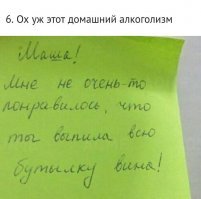 6. Ох уж этот домашний алкоголизм
Маша!
Мне не очень-то
понравилось, что
ты выпила всю
бутылку вина!